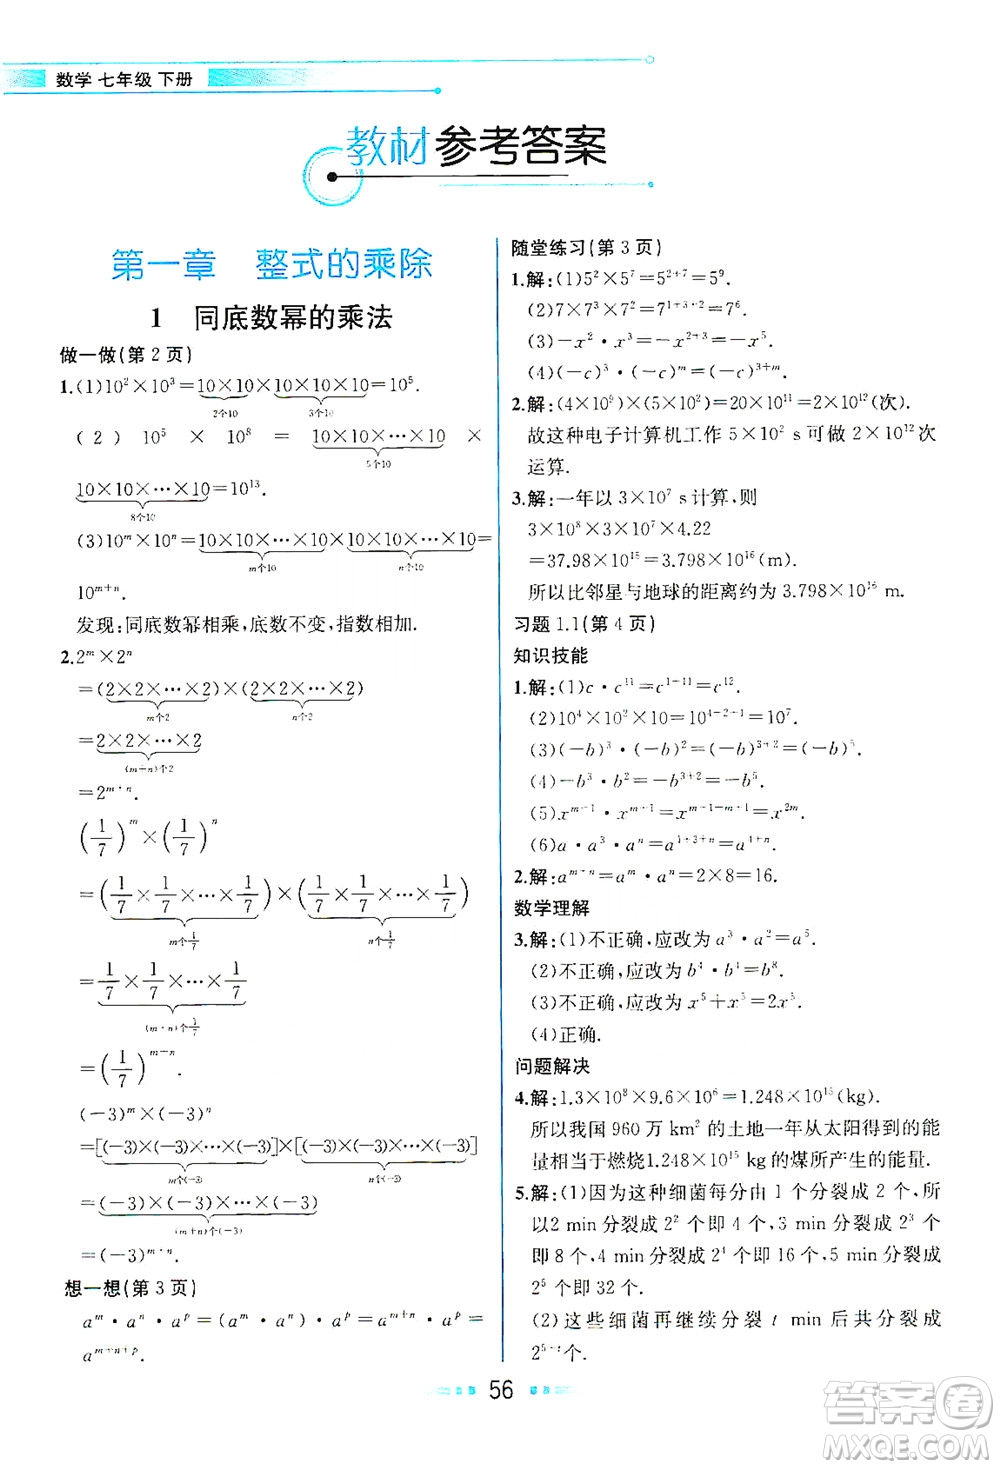 数学 七年级 下册
教材参考答案
第一章 整式的乘除
1 同底数幂的乘法
做一做(第 2 页)
1.(1)10²×10³=10×10×10×10×10=10⁵.
2个10 3个10
(2) 10⁵ × 10⁸ = 10×10×…×10 ×
5个10
10×10×…×10=10¹³.
8个10
(3)10ᵐ×10ⁿ=10×10×…×10×10×10×…×10=
m个10 n个10
10ᵐ⁺ⁿ.
发现:同底数幂相乘,底数不变,指数相加.
2.2ᵐ×2ⁿ
=(2×2×…×2)×(2×2×…×2)
m个2 n个2
=2×2×…×2
(m+n)个2
=2ᵐ⁺ⁿ.
(1/7)ᵐ×(1/7)ⁿ
=(1/7×1/7×…×1/7)×(1/7×1/7×…×1/7)
m个1/7 n个1/7
=1/7×1/7×…×1/7
(m+n)个1/7
=(1/7)ᵐ⁺ⁿ.
(-3)ᵐ×(-3)ⁿ
=[(-3)×(-3)×…×(-3)]×[(-3)×(-3)×…×(-3)]
m个(-3) n个(-3)
=(-3)×(-3)×…×(-3)
(m+n)个(-3)
=(-3)ᵐ⁺ⁿ.
想一想(第 3 页)
aᵐ · aⁿ · aᵖ = (aᵐ · aⁿ) · aᵖ = aᵐ⁺ⁿ · aᵖ =
aᵐ⁺ⁿ⁺ᵖ.
随堂练习(第 3 页)
1.解:(1)5²×5⁷=5²⁺⁷=5⁹.
(2)7×7³×7²=7¹⁺³⁺²=7⁶.
(3)-x²·x³=-x²⁺³=-x⁵.
(4)(-c)³·(-c)ᵐ=(-c)³⁺ᵐ.
2.解:(4×10⁹)×(5×10²)=20×10¹¹=2×10¹²(次).
故这种电子计算机工作 5×10² s 可做 2×10¹² 次
运算.
3.解:一年以 3×10⁷ s 计算,则
3×10⁸×3×10⁷×4.22
=37.98×10¹⁵=3.798×10¹⁶(m).
所以比邻星与地球的距离约为 3.798×10¹⁶ m.
习题 1.1(第 4 页)
知识技能
1.解:(1)c·c¹¹=c¹⁺¹¹=c¹².
(2)10⁴×10²×10=10⁴⁺²⁺¹=10⁷.
(3)(-b)³·(-b)²=(-b)³⁺²=(-b)⁵.
(4)-b³·b²=-b³⁺²=-b⁵.
(5)xᵐ⁻¹·xᵐ⁺¹=xᵐ⁻¹⁺ᵐ⁺¹=x²ᵐ.
(6)a·a³·aⁿ=a¹⁺³⁺ⁿ=a⁴⁺ⁿ.
2.解:aᵐ⁺ⁿ=aᵐ·aⁿ=2×8=16.
数学理解
3.解:(1)不正确,应改为 a³·a²=a⁵.
(2)不正确,应改为 b⁴·b⁴=b⁸.
(3)不正确,应改为 x⁵+x⁵=2x⁵.
(4)正确.
问题解决
4.解:1.3×10⁸×9.6×10⁶=1.248×10¹⁵(kg).
所以我国 960 万 km² 的土地一年从太阳得到的能
量相当于燃烧1.248×10¹⁵ kg 的煤所产生的能量.
5.解:(1)因为这种细菌每分由 1 个分裂成 2 个,所
以2 min 分裂成 2² 个即 4 个,3 min 分裂成 2³ 个
即 8 个,4 min 分裂成 2⁴ 个即 16 个,5 min 分裂成
2⁵ 个即 32 个.
(2)这些细菌再继续分裂 t min 后共分裂成
2⁵⁺ᵗ个.
56
答案圈
MXQE.COM